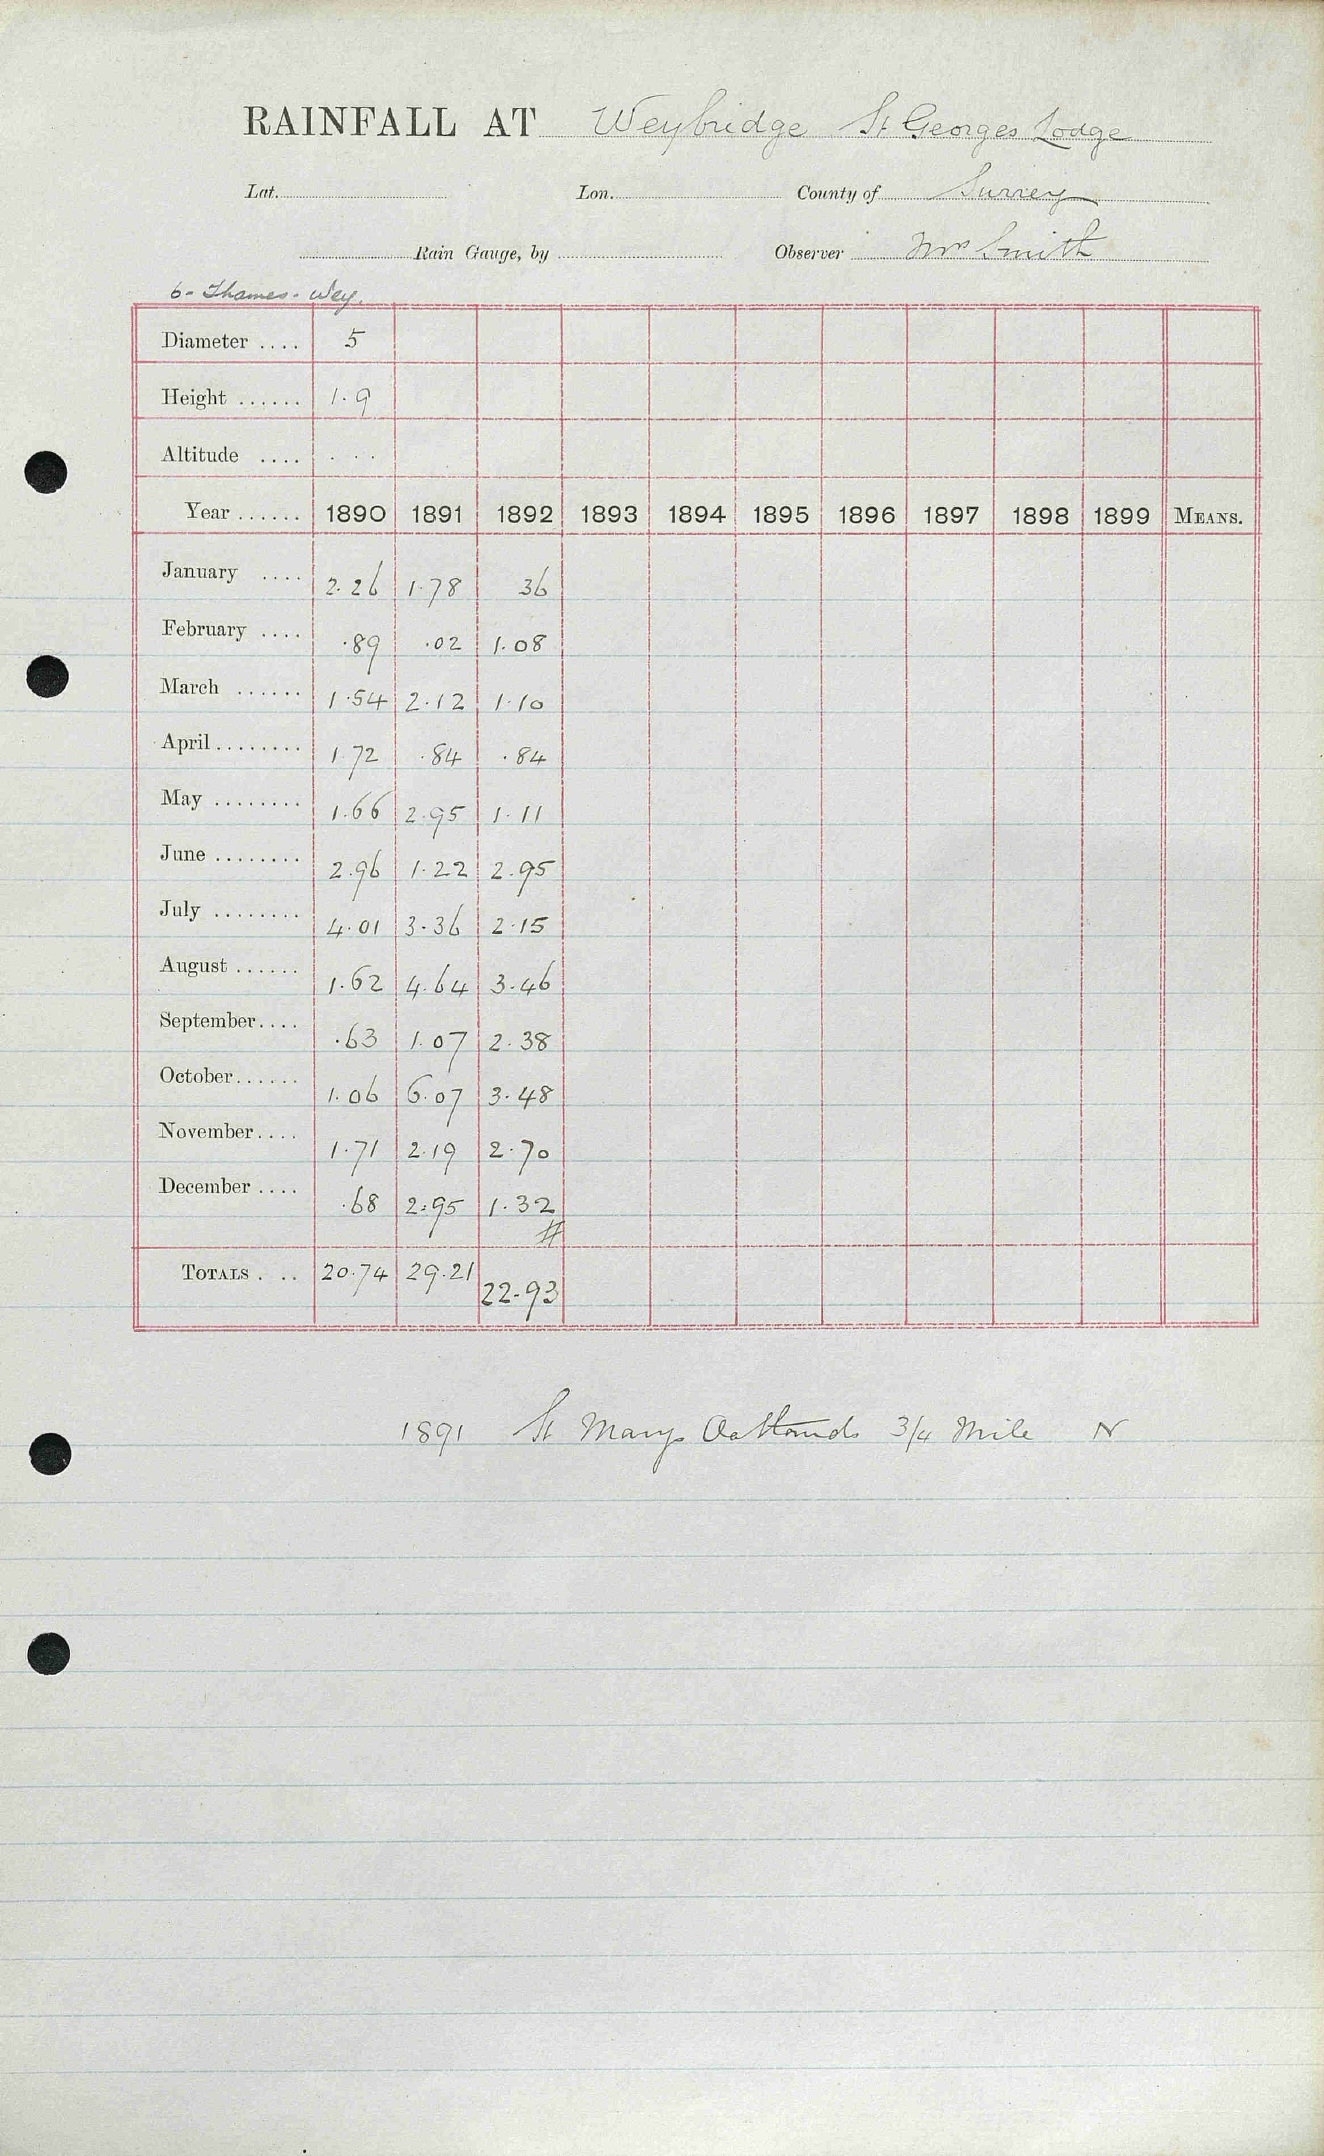 RAINFALL AT Weybridge St Georges Lodge
Lat. Lon. County of Surrey
Rain Gauge, by Observer Mrs Smith
6 - Thames - Wey.
Diameter .... 5
Height ...... 1.9
Altitude .... ...
Year ...... 1890 1891 1892 1893 1894 1895 1896 1897 1898 1899 MEANS.
January .... 2.26 1.78 36
February .... .89 .02 1.08
March ...... 1.54 2.12 1.10
April ........ 1.72 .84 .84
May ........ 1.66 2.95 1.11
June ........ 2.96 1.22 2.95
July ........ 4.01 3.36 2.15
August ...... 1.62 4.64 3.46
September .... .63 1.07 2.38
October ...... 1.06 6.07 3.48
November .... 1.71 2.19 2.70
December .... .68 2.95 1.32
#
TOTALS . .. 20.74 29.21 22.93
1891 St Marys Oatlands 3/4 Mile N